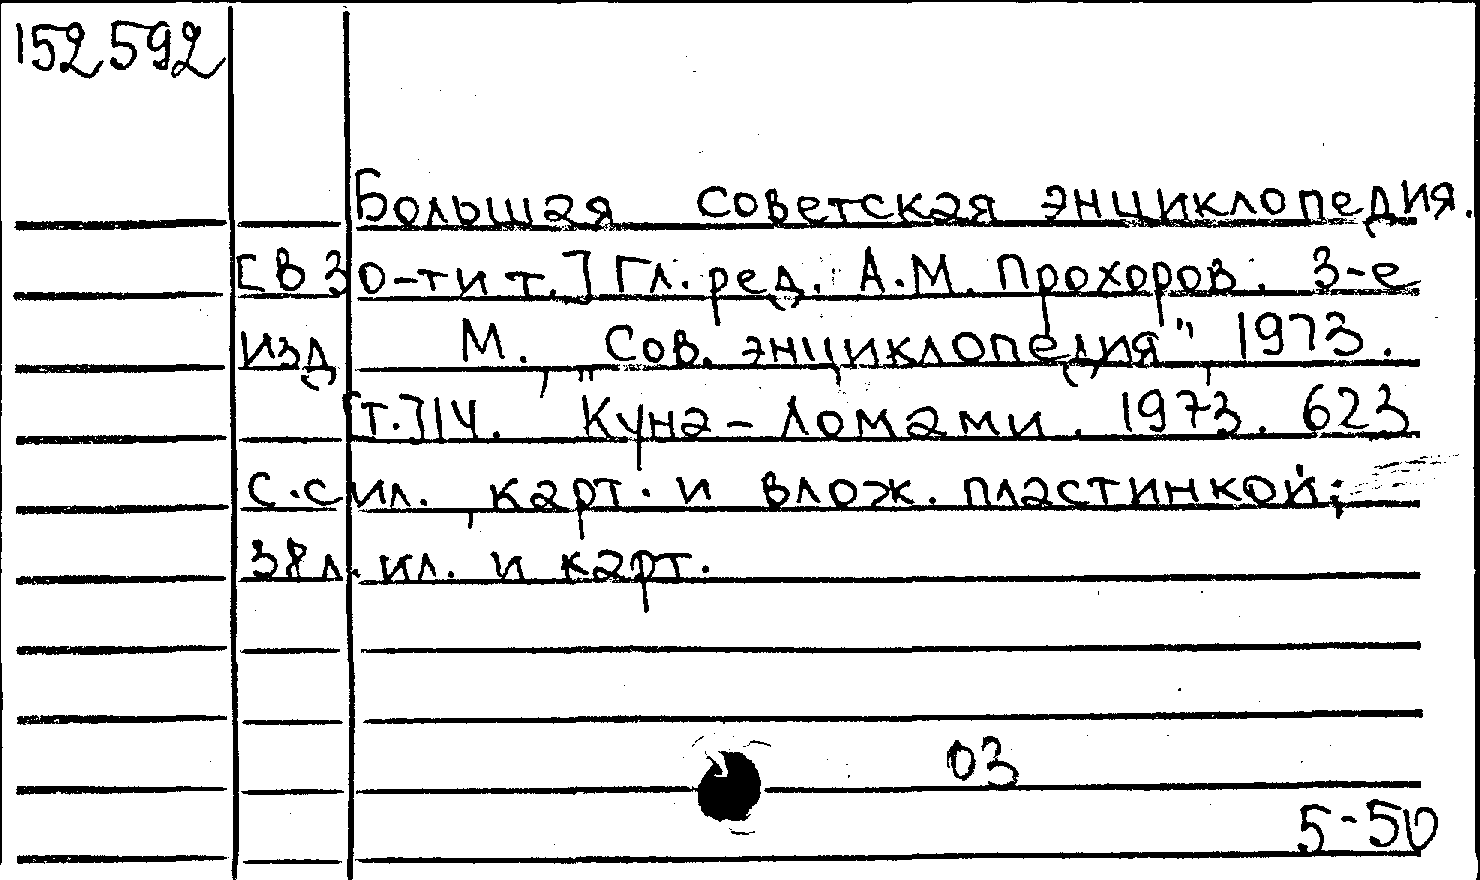 152592
Большая советская энциклопедия.
[в 30-ти т.] Гл. ред. А.М. Прохоров. 3-е
изд М., "Сов. энциклопедия", 1973.
[т.] 14. Куна - Ломами. 1973. 623
с.с ил., карт. и влож. пластинкой;
38 л. ил. и карт.
03
5-50